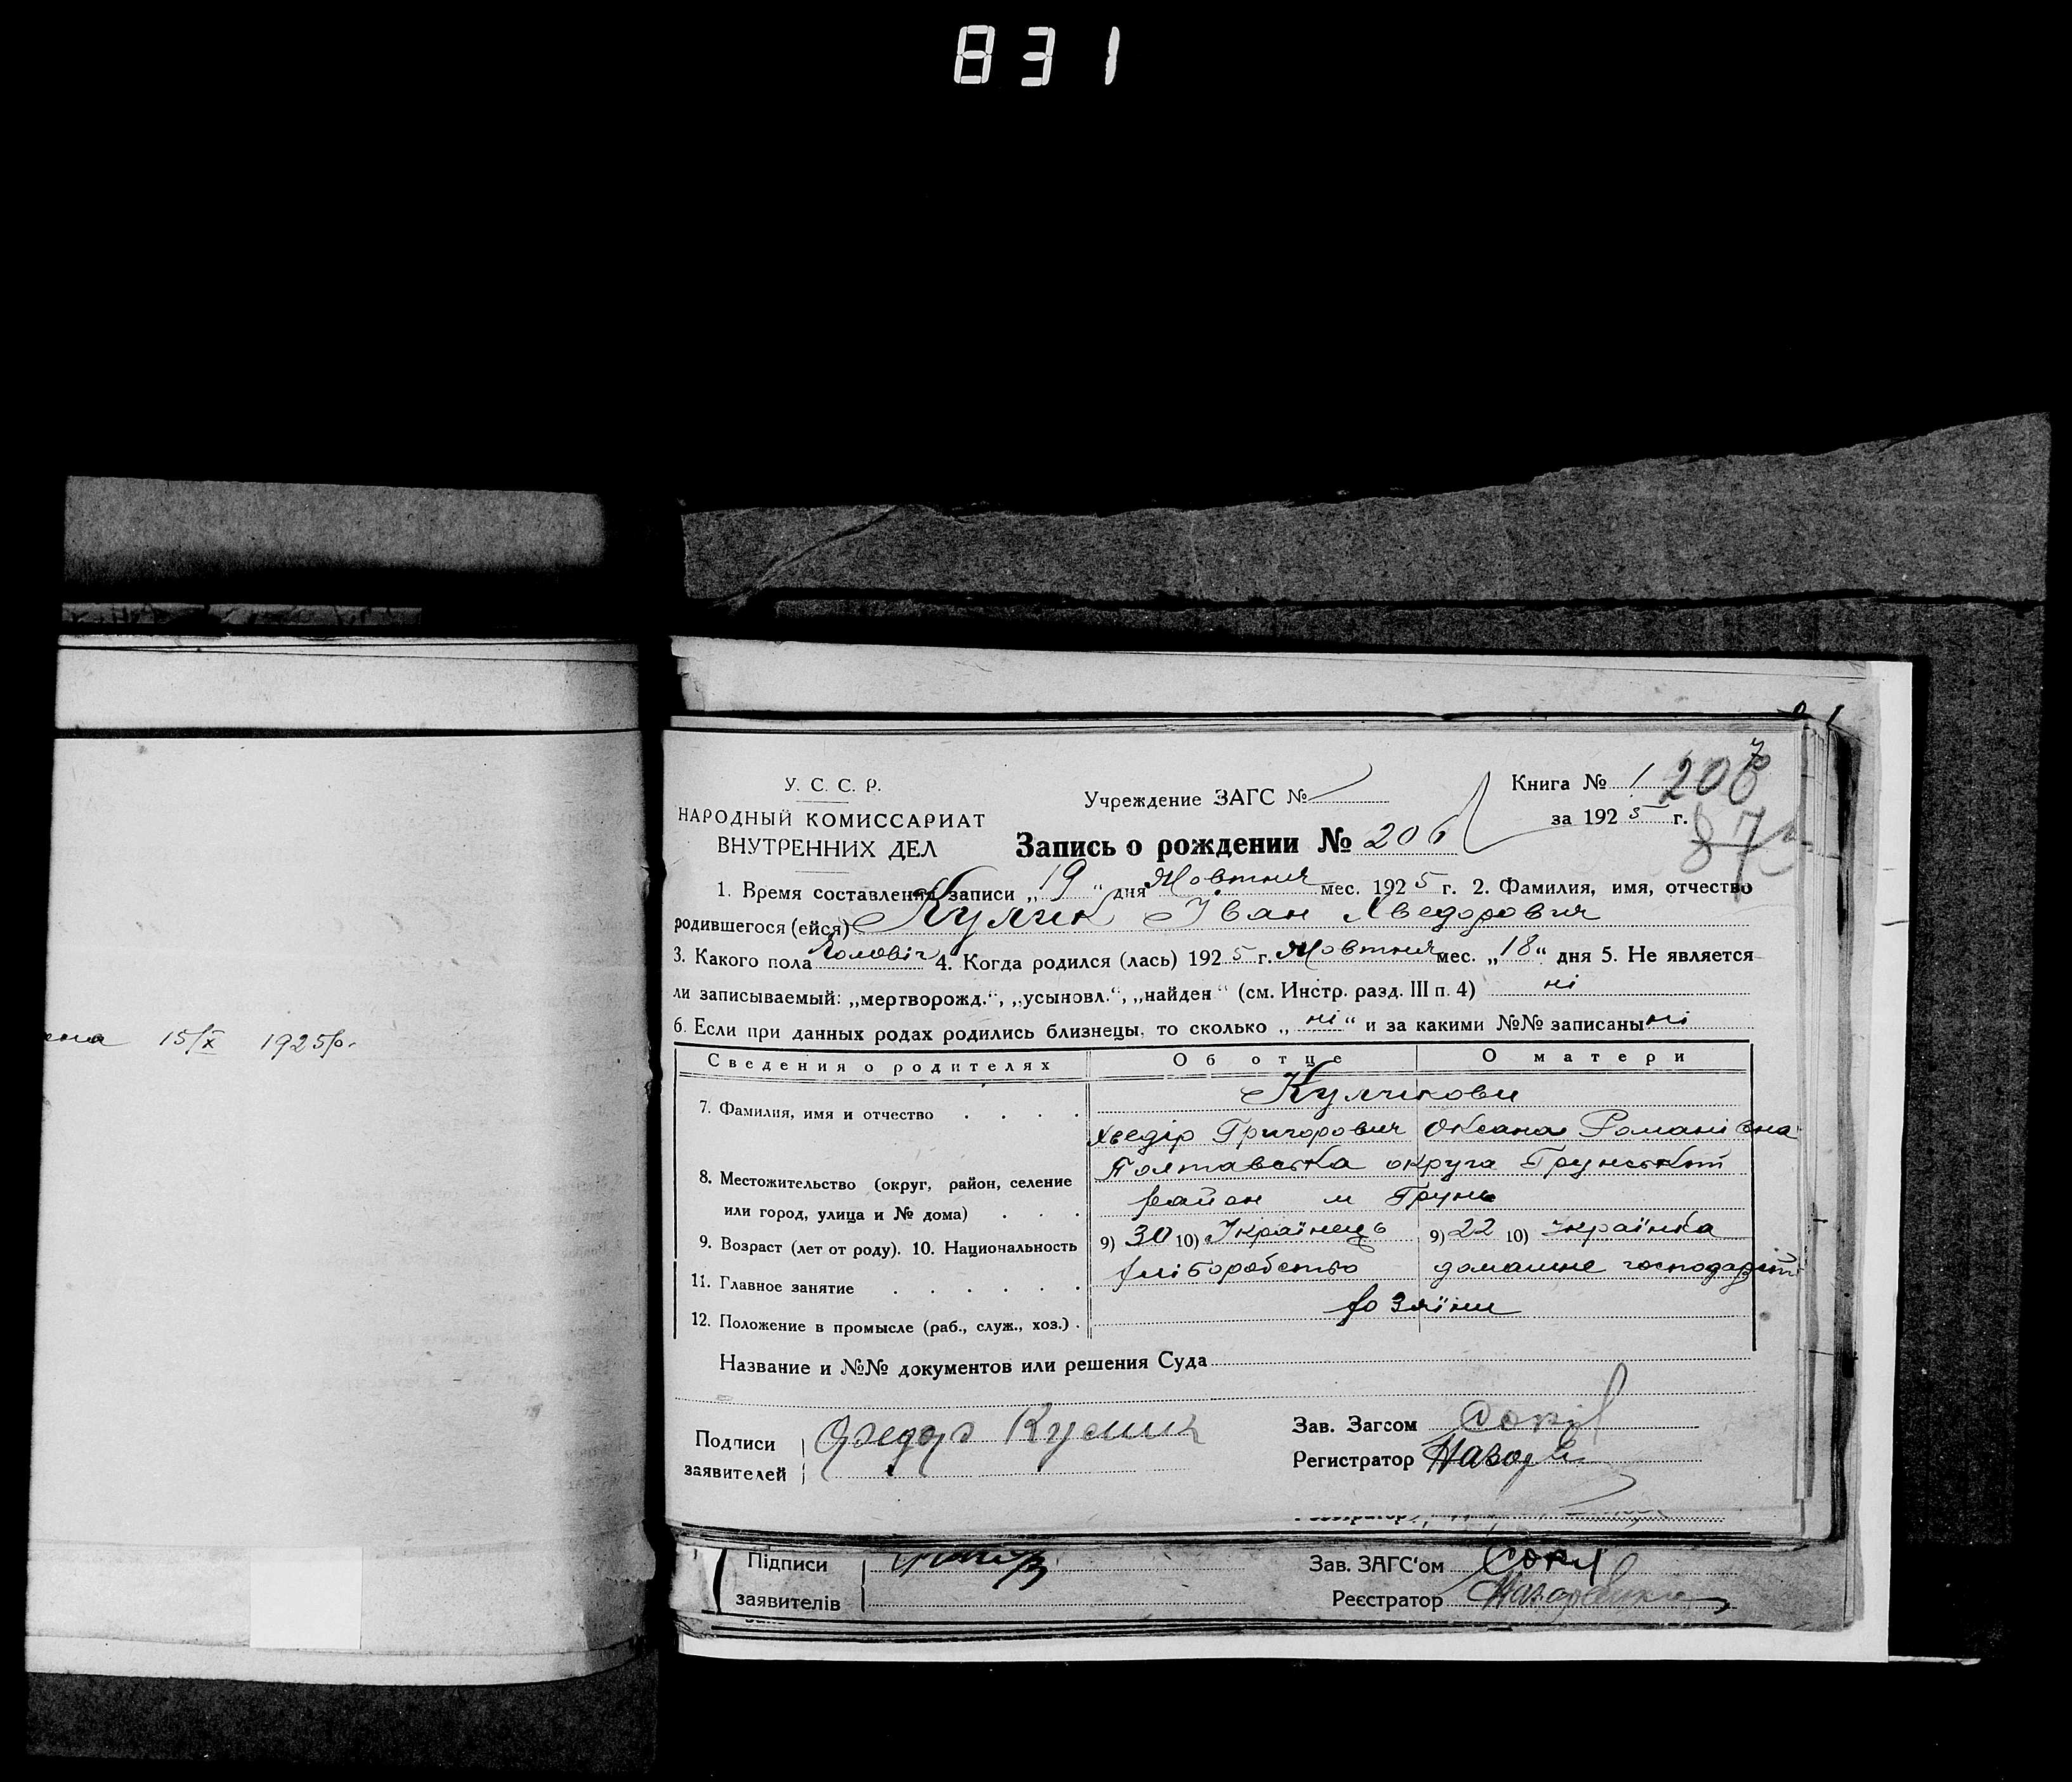 831
ена 15/X 1925 р.
У. С. С. Р.
НАРОДНЫЙ КОМИССАРИАТ
ВНУТРЕННИХ ДЕЛ
Учреждение ЗАГС №
Книга № 1
за 1925 г.
207
87
Запись о рождении № 206
1. Время составления записи „19“ дня Жовтня мес. 1925 г. 2. Фамилия, имя, отчество
родившегося (ейся) Кулик Іван Хведорович
3. Какого пола Чоловіч 4. Когда родился (лась) 1925 г. Жовтня мес. „18“ дня 5. Не является
ли записываемый: „мертворожд.“, „усыновл.“, „найден“ (см. Инстр. разд. III п. 4) ні
6. Если при данных родах родились близнецы, то сколько „ні“ и за какими №№ записаны ні
Сведения о родителях Об отце О матери
7. Фамилия, имя и отчество . . . . Куликови
Хведір Григорович Оксана Романівна
8. Местожительство (округ, район, селение Полтавська округа Грунський
или город, улица и № дома) . . . район м Грунь
9. Возраст (лет от роду). 10. Национальность 9) 30 10) Українець 9) 22 10) Українка
11. Главное занятие . . . . . . хліборобство домашне господарств
12. Положение в промысле (раб., служ., хоз.) . хозяїни
Название и №№ документов или решения Суда
Подписи
заявителей
Кулик
Зав. Загсом
Регистратор
Підписи
заявителів
Зав. ЗАГС'ом
Реєстратор